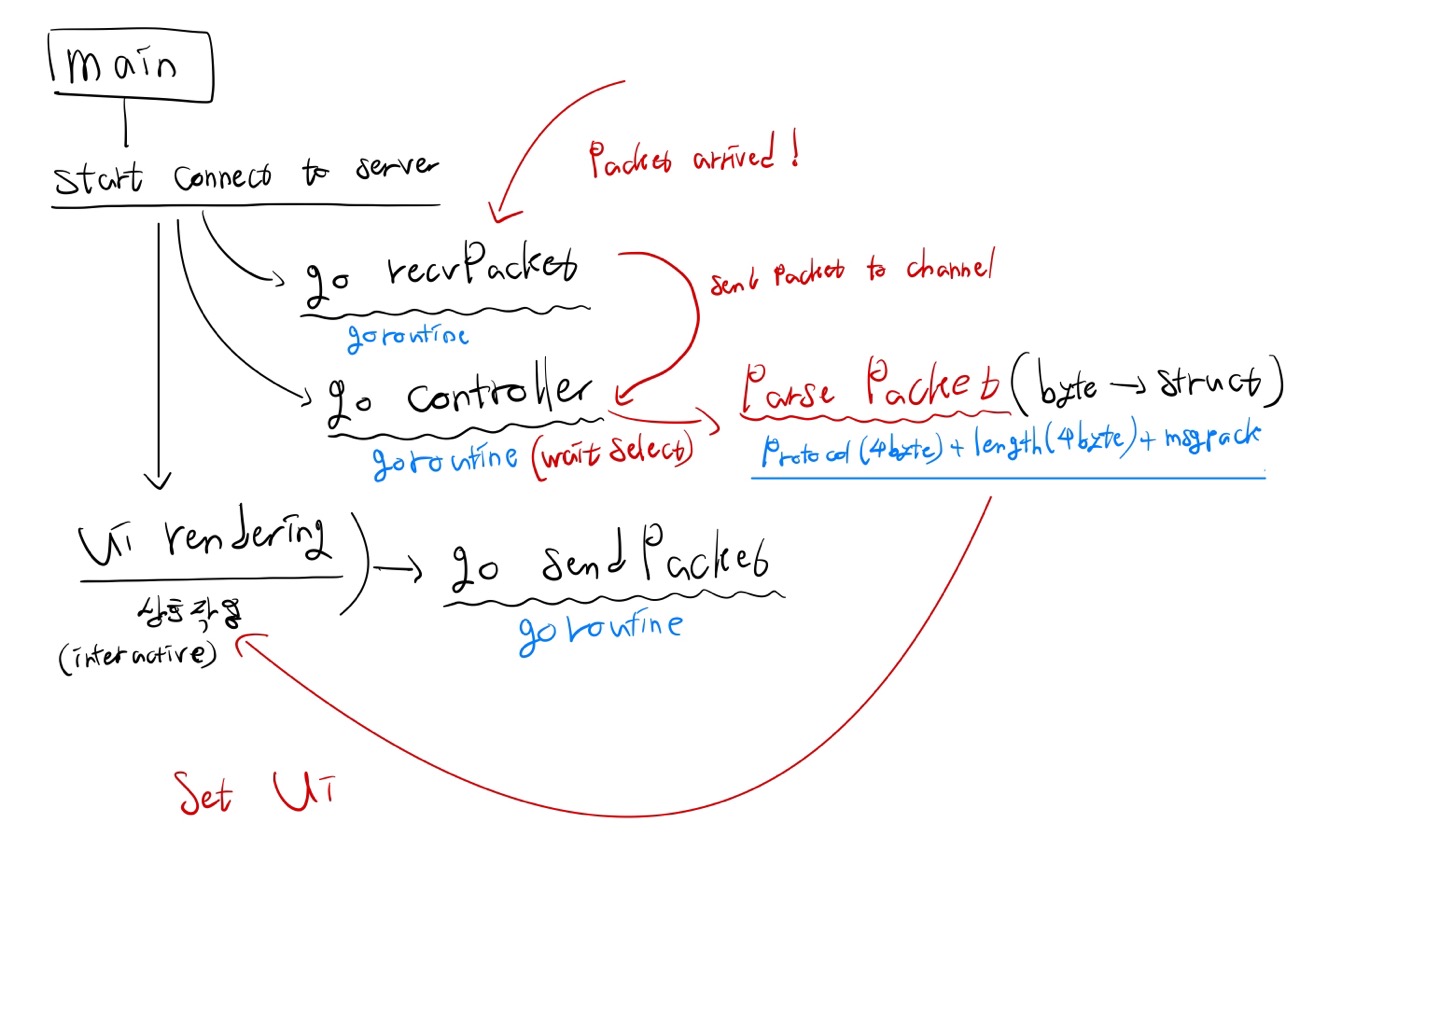 main
start connect to server
Packet arrived!
go recvPacket
goroutine
sent packet to channel
go controller
goroutine (wait select)
Parse Packet (byte → struct)
Protocol (4byte) + length (4byte) + msgpack
Ui rendering
상호작용
(interactive)
go sendPacket
goroutine
Set Ui